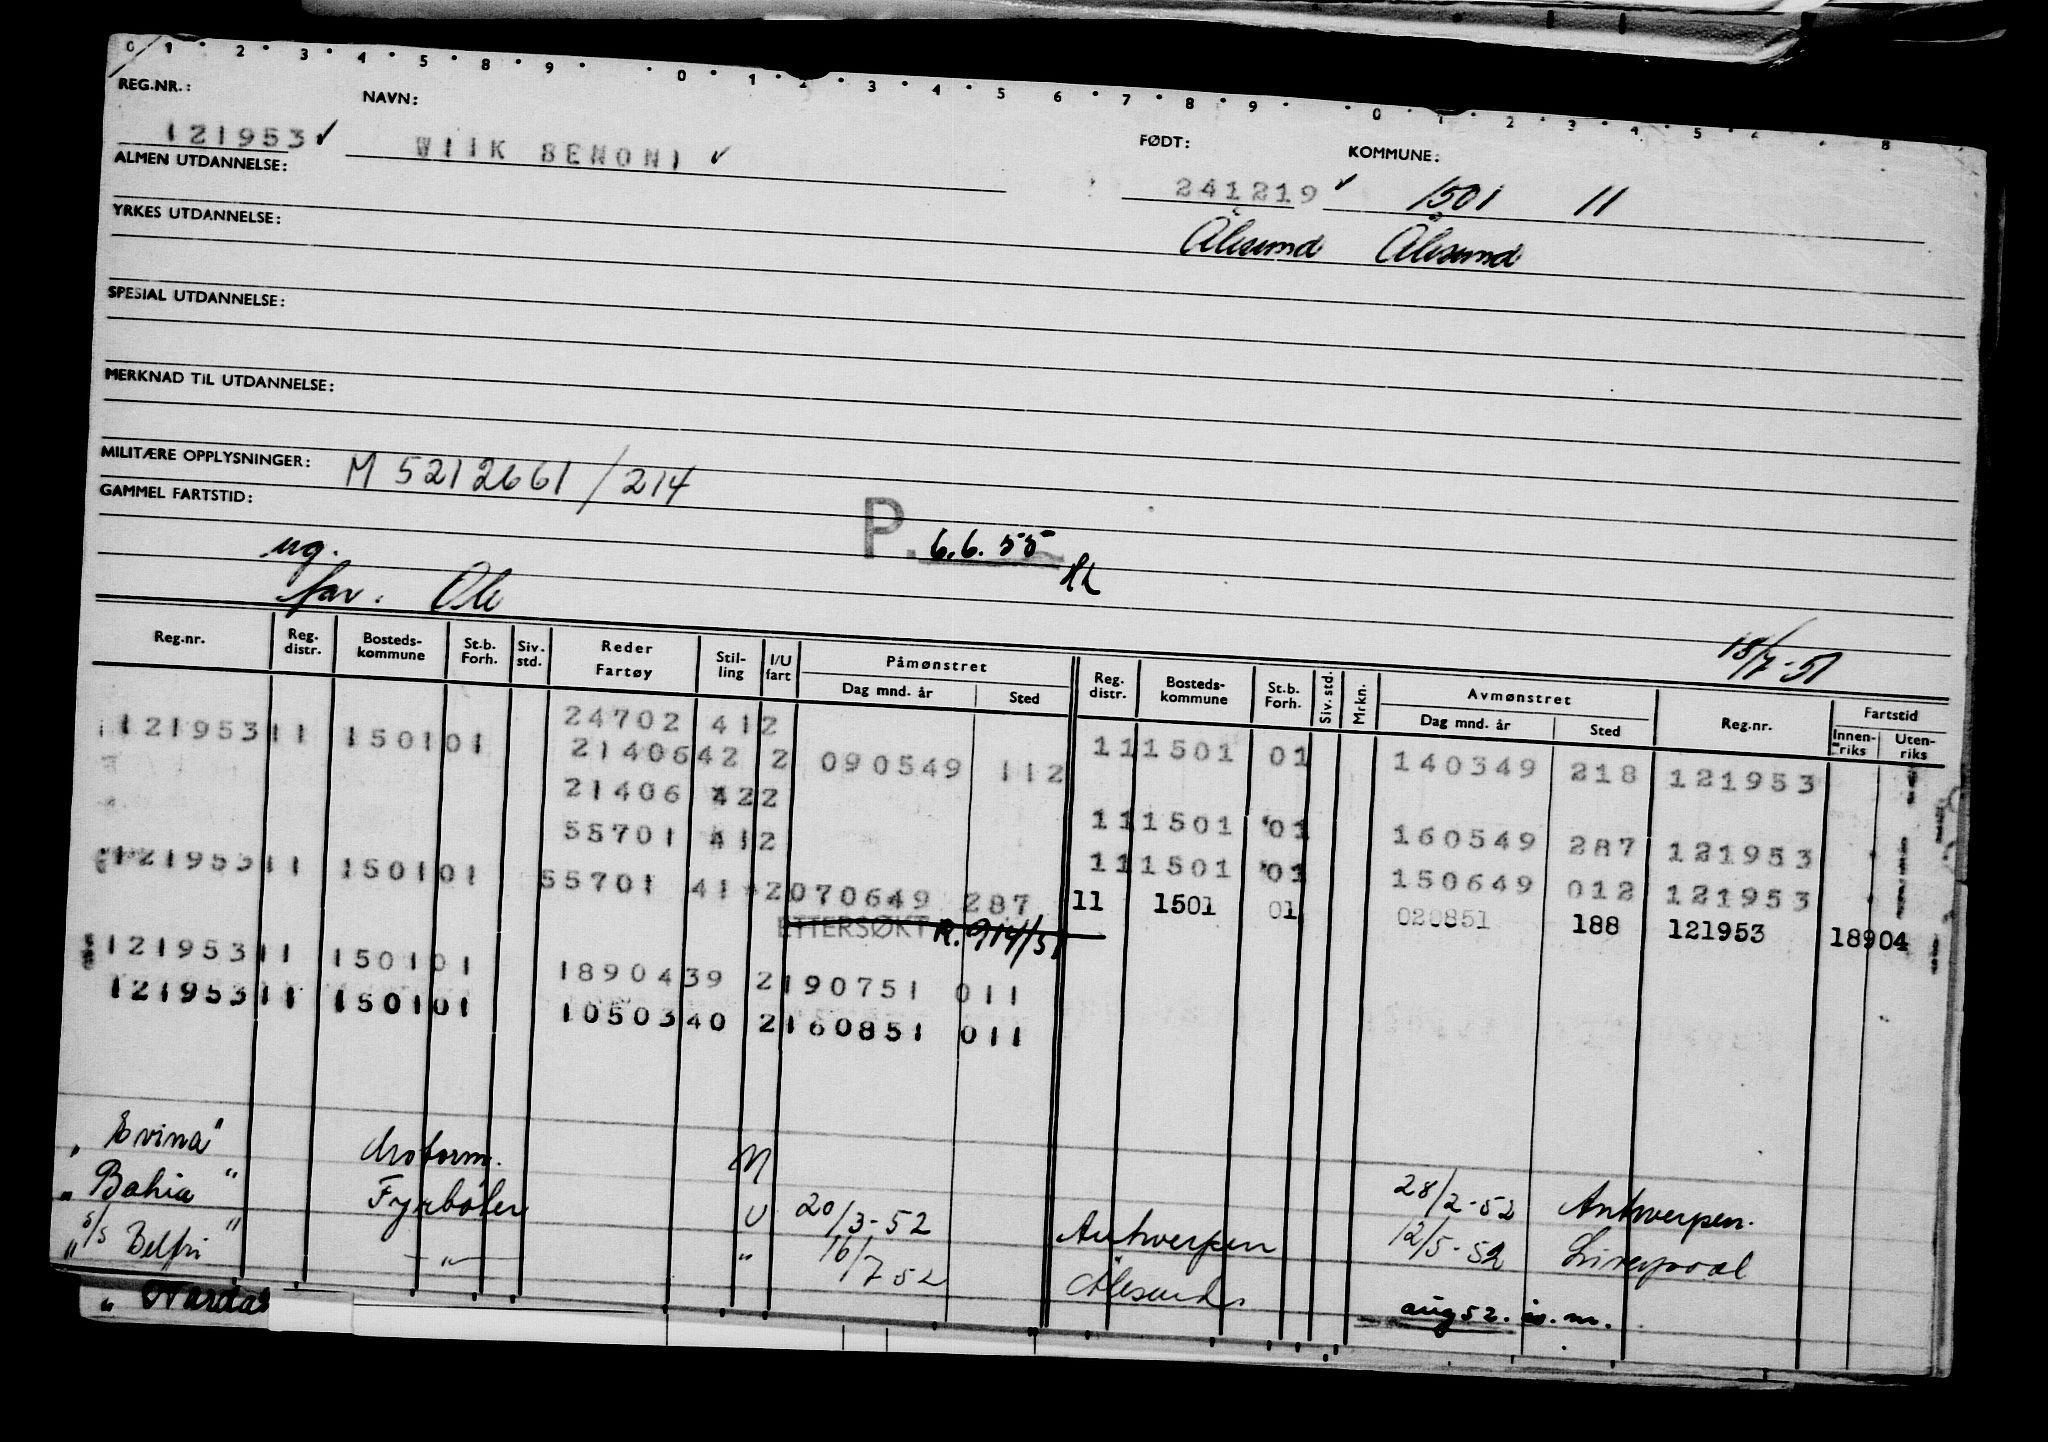 0 1 2 3 4 5 8 9 0 1 2 3 4 5 6 7 8 9 0 1 2 3 4 5 8
REG.NR.: NAVN: FØDT: KOMMUNE:
121953 ✓ WIIK BENONI ✓ 241219 ✓ 1501 11
ALMEN UTDANNELSE:
Ålesund Ålesund
YRKES UTDANNELSE:
SPESIAL UTDANNELSE:
MERKNAD TIL UTDANNELSE:
MILITÆRE OPPLYSNINGER: M 5212661/214
GAMMEL FARTSTID:
P. 6.6.55
ug.
far: Ole
18/7-51
Reg.nr. Reg. distr. Bosteds-kommune St.b. Forh. Siv. std. Reder Fartøy Stil-ling I/U fart Påmønstret Dag mnd. år Sted Reg. distr. Bosteds-kommune St.b. Forh. Siv. std. Mrkn. Avmønstret Dag mnd. år Sted Reg.nr. Fartstid Innen-riks Uten-riks
121953 11 1501 01 24702 41 2 11 1501 01 140349 218 121953
21406 42 2 090549 112
21406 42 2 11 1501 01 160549 287 121953
55701 41 2 11 1501 01 150649 012 121953
121953 11 1501 01 55701 41 2 070649 287 11 1501 01 020851 188 121953 18904
ETTERSØKT R. 914/51
121953 11 1501 01 18904 39 2 190751 011
121953 11 1501 01 10503 40 2 160851 011
" Evina" Motorm. N 28/2-52 Antwerpen.
" Bahia " Fyrbøter U 20/3-52 Antwerpen 12/5-52 Liverpool
" s/s Belfri " -"- " 16/7 52 Ålesund aug 52. is. m.
" Nardas